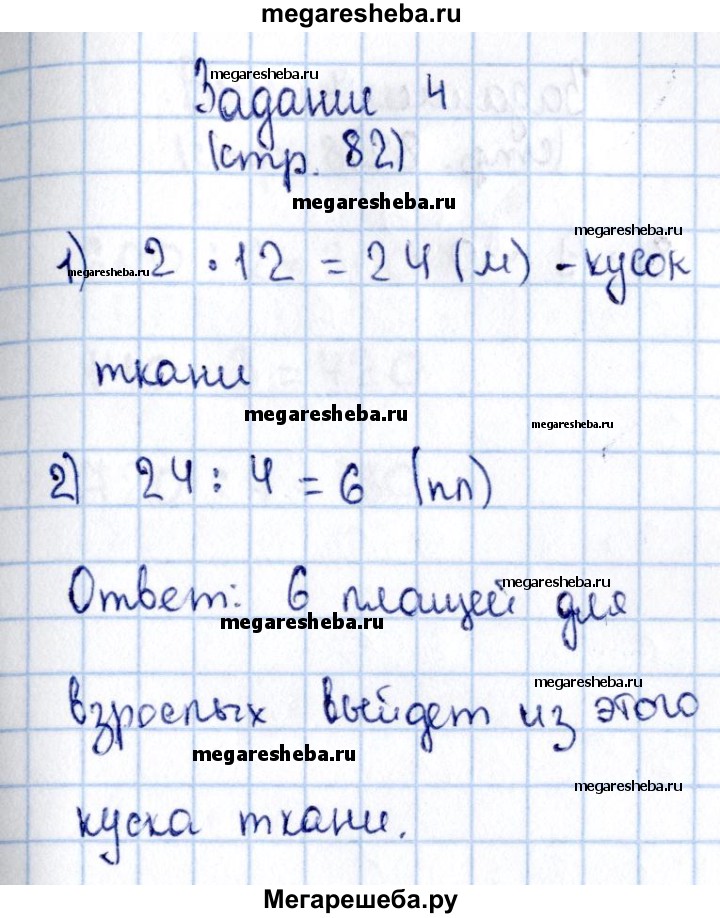 megaresheba.ru
megaresheba.ru
Задание 4
(стр. 82)
megaresheba.ru
megaresheba.ru
1) 2 · 12 = 24 (м) - кусок
megaresheba.ru
ткани
megaresheba.ru
megaresheba.ru
2) 24 : 4 = 6 (пл)
megaresheba.ru
Ответ: 6 плащей для
megaresheba.ru
megaresheba.ru
взрослых выйдет из этого
megaresheba.ru
megaresheba.ru
куска ткани.
Мегарешеба.ру